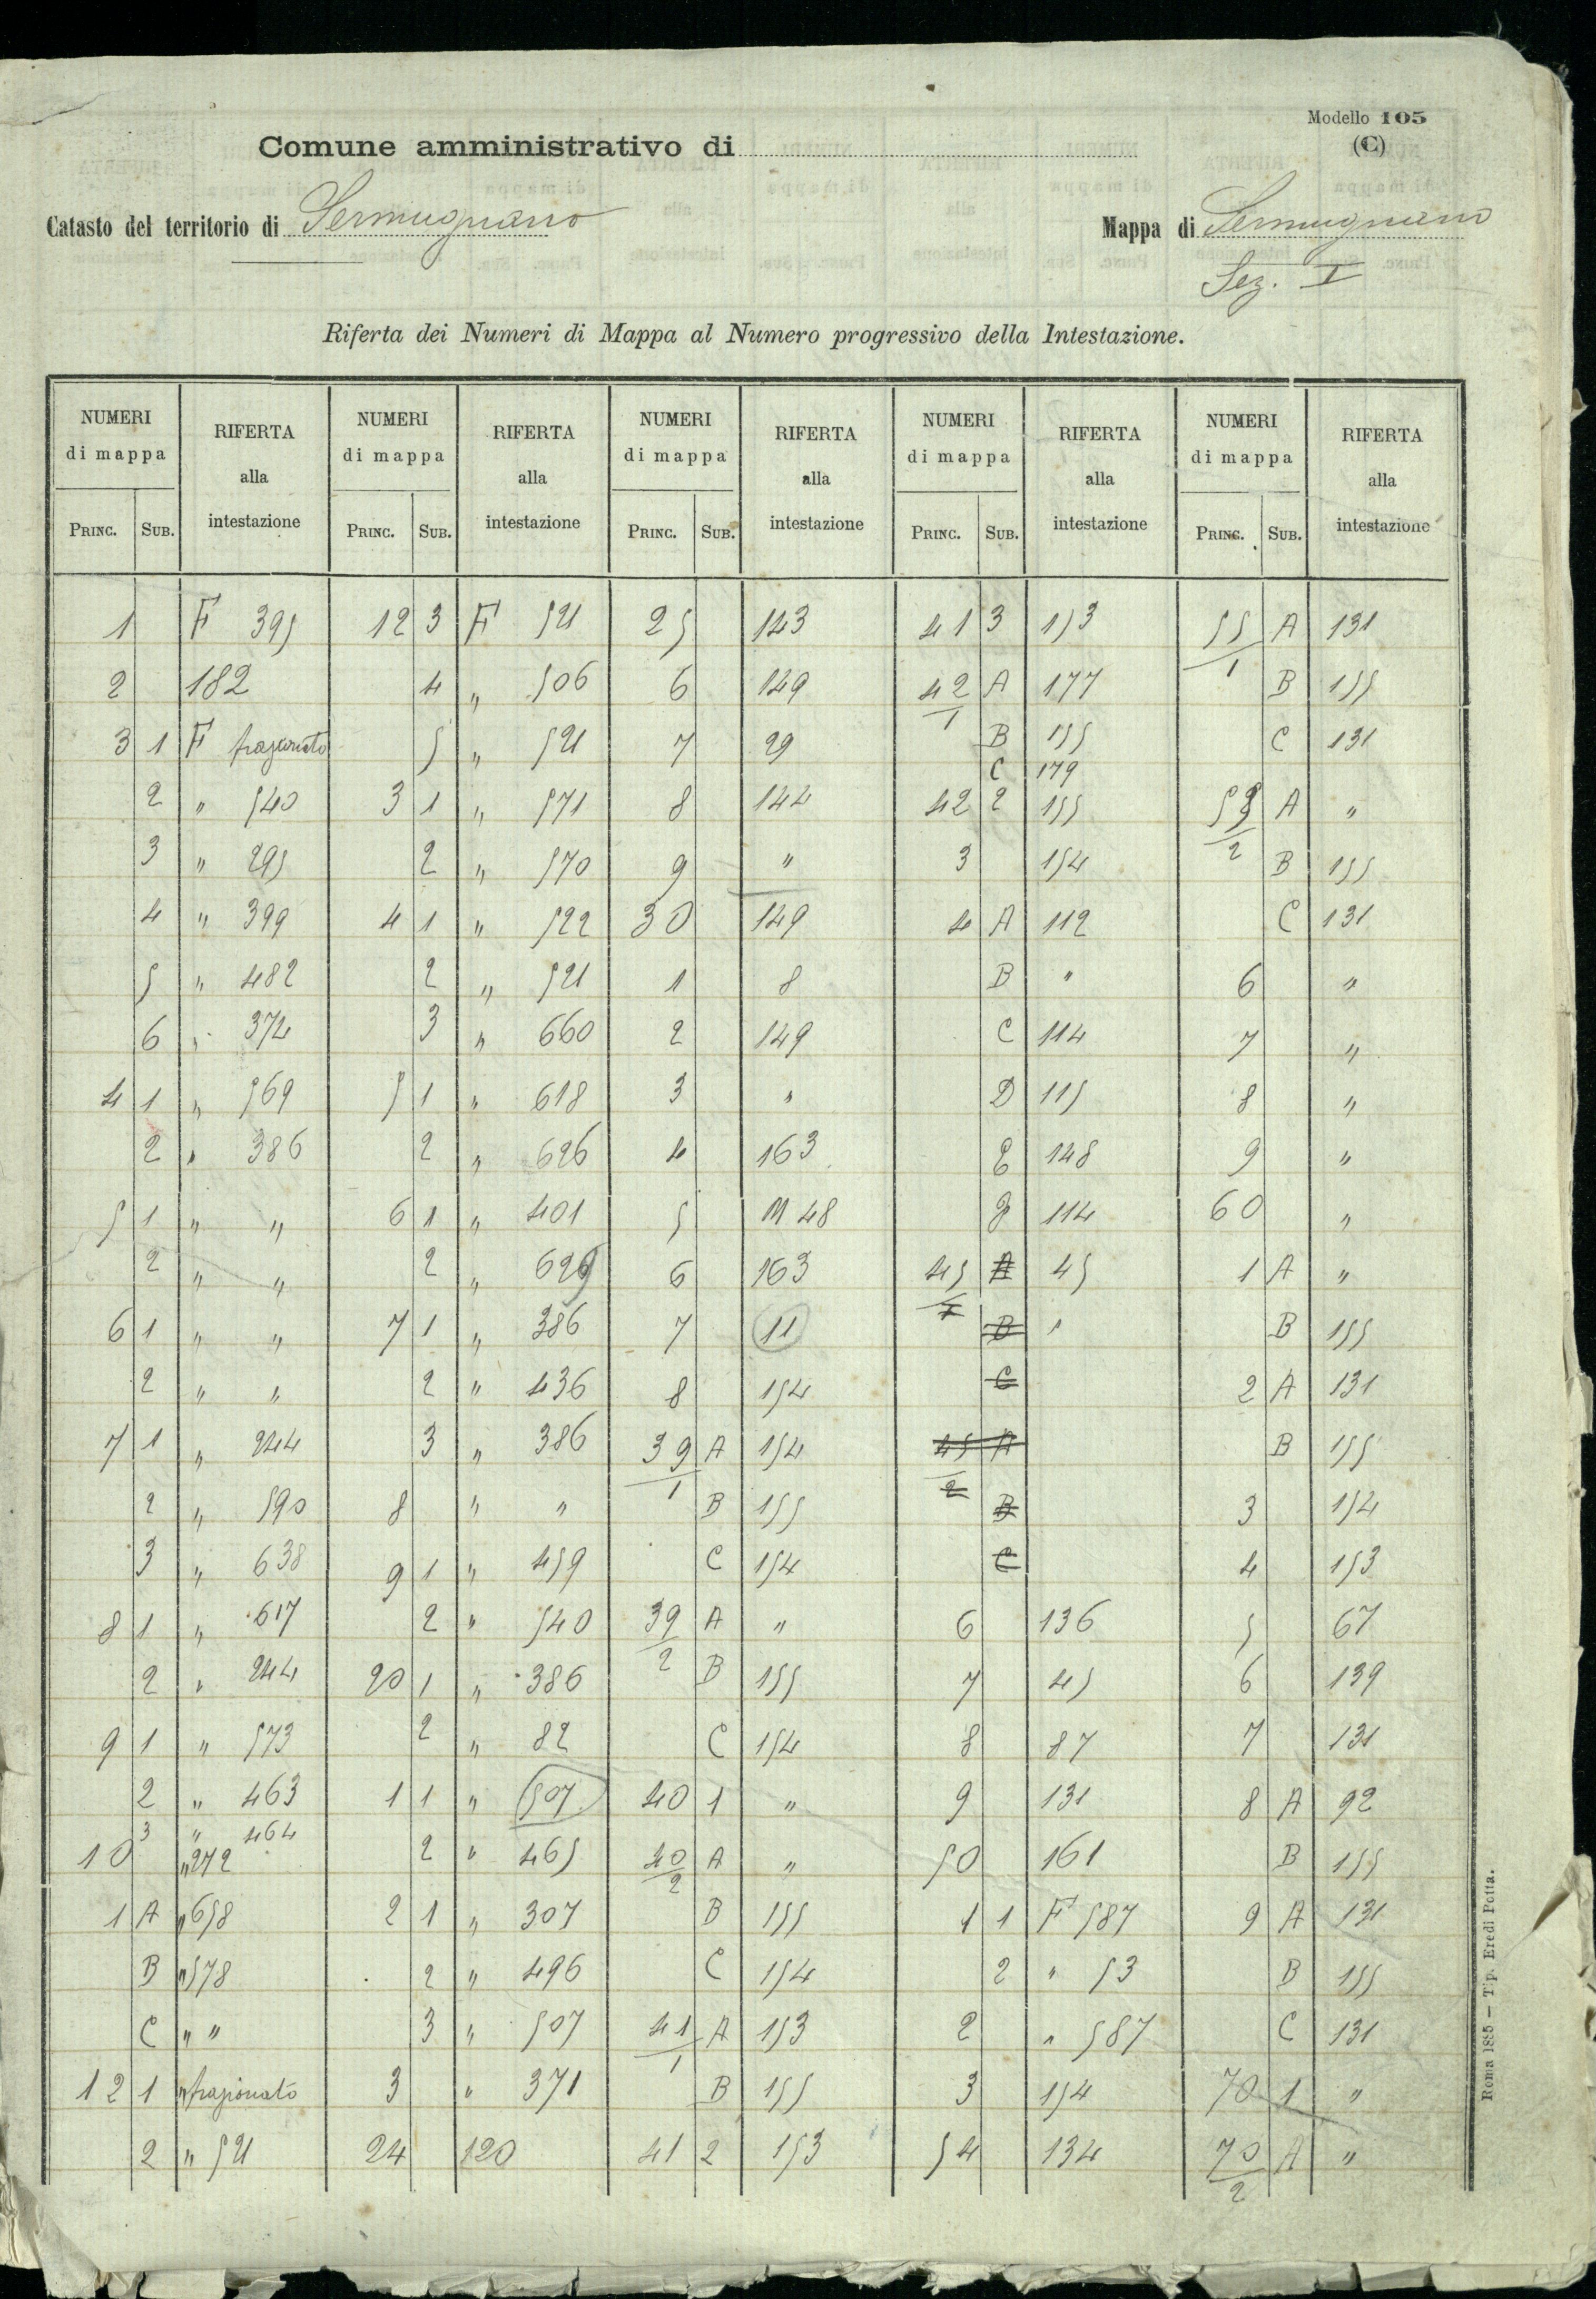 Modello 105
(C)
Comune amministrativo di
Catasto del territorio di Sermugnano
Mappa di Sermugnano
Sez. I
Riferta dei Numeri di Mappa al Numero progressivo della Intestazione.
NUMERI di mappa RIFERTA alla intestazione NUMERI di mappa RIFERTA alla intestazione NUMERI di mappa RIFERTA alla intestazione NUMERI di mappa RIFERTA alla intestazione NUMERI di mappa RIFERTA alla intestazione
PRINC. SUB. PRINC. SUB. PRINC. SUB. PRINC. SUB. PRINC. SUB.
1 F 395 12 3 F 521 25 143 41 3 153 55/1 A 131
2 182 4 " 506 6 149 42/1 A 177 B 155
3 1 F frazionato 5 " 521 7 29 B 155 C 131
C 179
2 " 540 3 1 " 571 8 144 42 2 155 A "
3 " 295 2 " 570 9 " 3 154 B 155
4 " 399 4 1 " 522 30 149 4 A 112 C 131
5 " 482 2 " 521 1 8 B " 6 "
6 " 374 3 " 660 2 149 C 114 7 "
4 1 " 569 5 1 " 618 3 " D 115 8 "
2 " 386 2 " 626 4 163 E 148 9 "
5 1 " " 6 1 " 401 5 M 48 114 60 "
2 " " 2 " 629 6 163 45/1 A 45 1 A "
6 1 " " 7 1 " 386 7 11 B " B 155
2 " " 2 " 436 8 154 C 2 A 131
7 1 " 244 3 " 386 39/1 A 154 45/2 A B 155
2 " 590 8 " " B 155 B 3 154
3 " 638 9 1 " 459 C 154 C 4 153
8 1 " 617 2 " 540 39/2 A " 6 136 5 67
2 " 244 20 1 " 386 B 155 7 45 6 139
9 1 " 573 2 " 82 C 154 8 87 7 131
2 " 463 1 1 " 507 40 1 " 9 131 8 A 92
3 " 464
10 " 272 2 " 465 40/2 A " 50 161 B 155
1 A " 658 2 1 " 307 B 155 1 1 F 587 9 A 131
B " 578 2 " 496 C 154 2 " 53 B 155
C " " 3 " 507 41/1 A 153 2 " 587 C 131
12 1 " frazionato 3 " 371 B 155 3 154 70 1 "
2 " 521 24 120 41 2 153 54 134 70/2 A "
Roma 1885 — Tip. Eredi Botta.